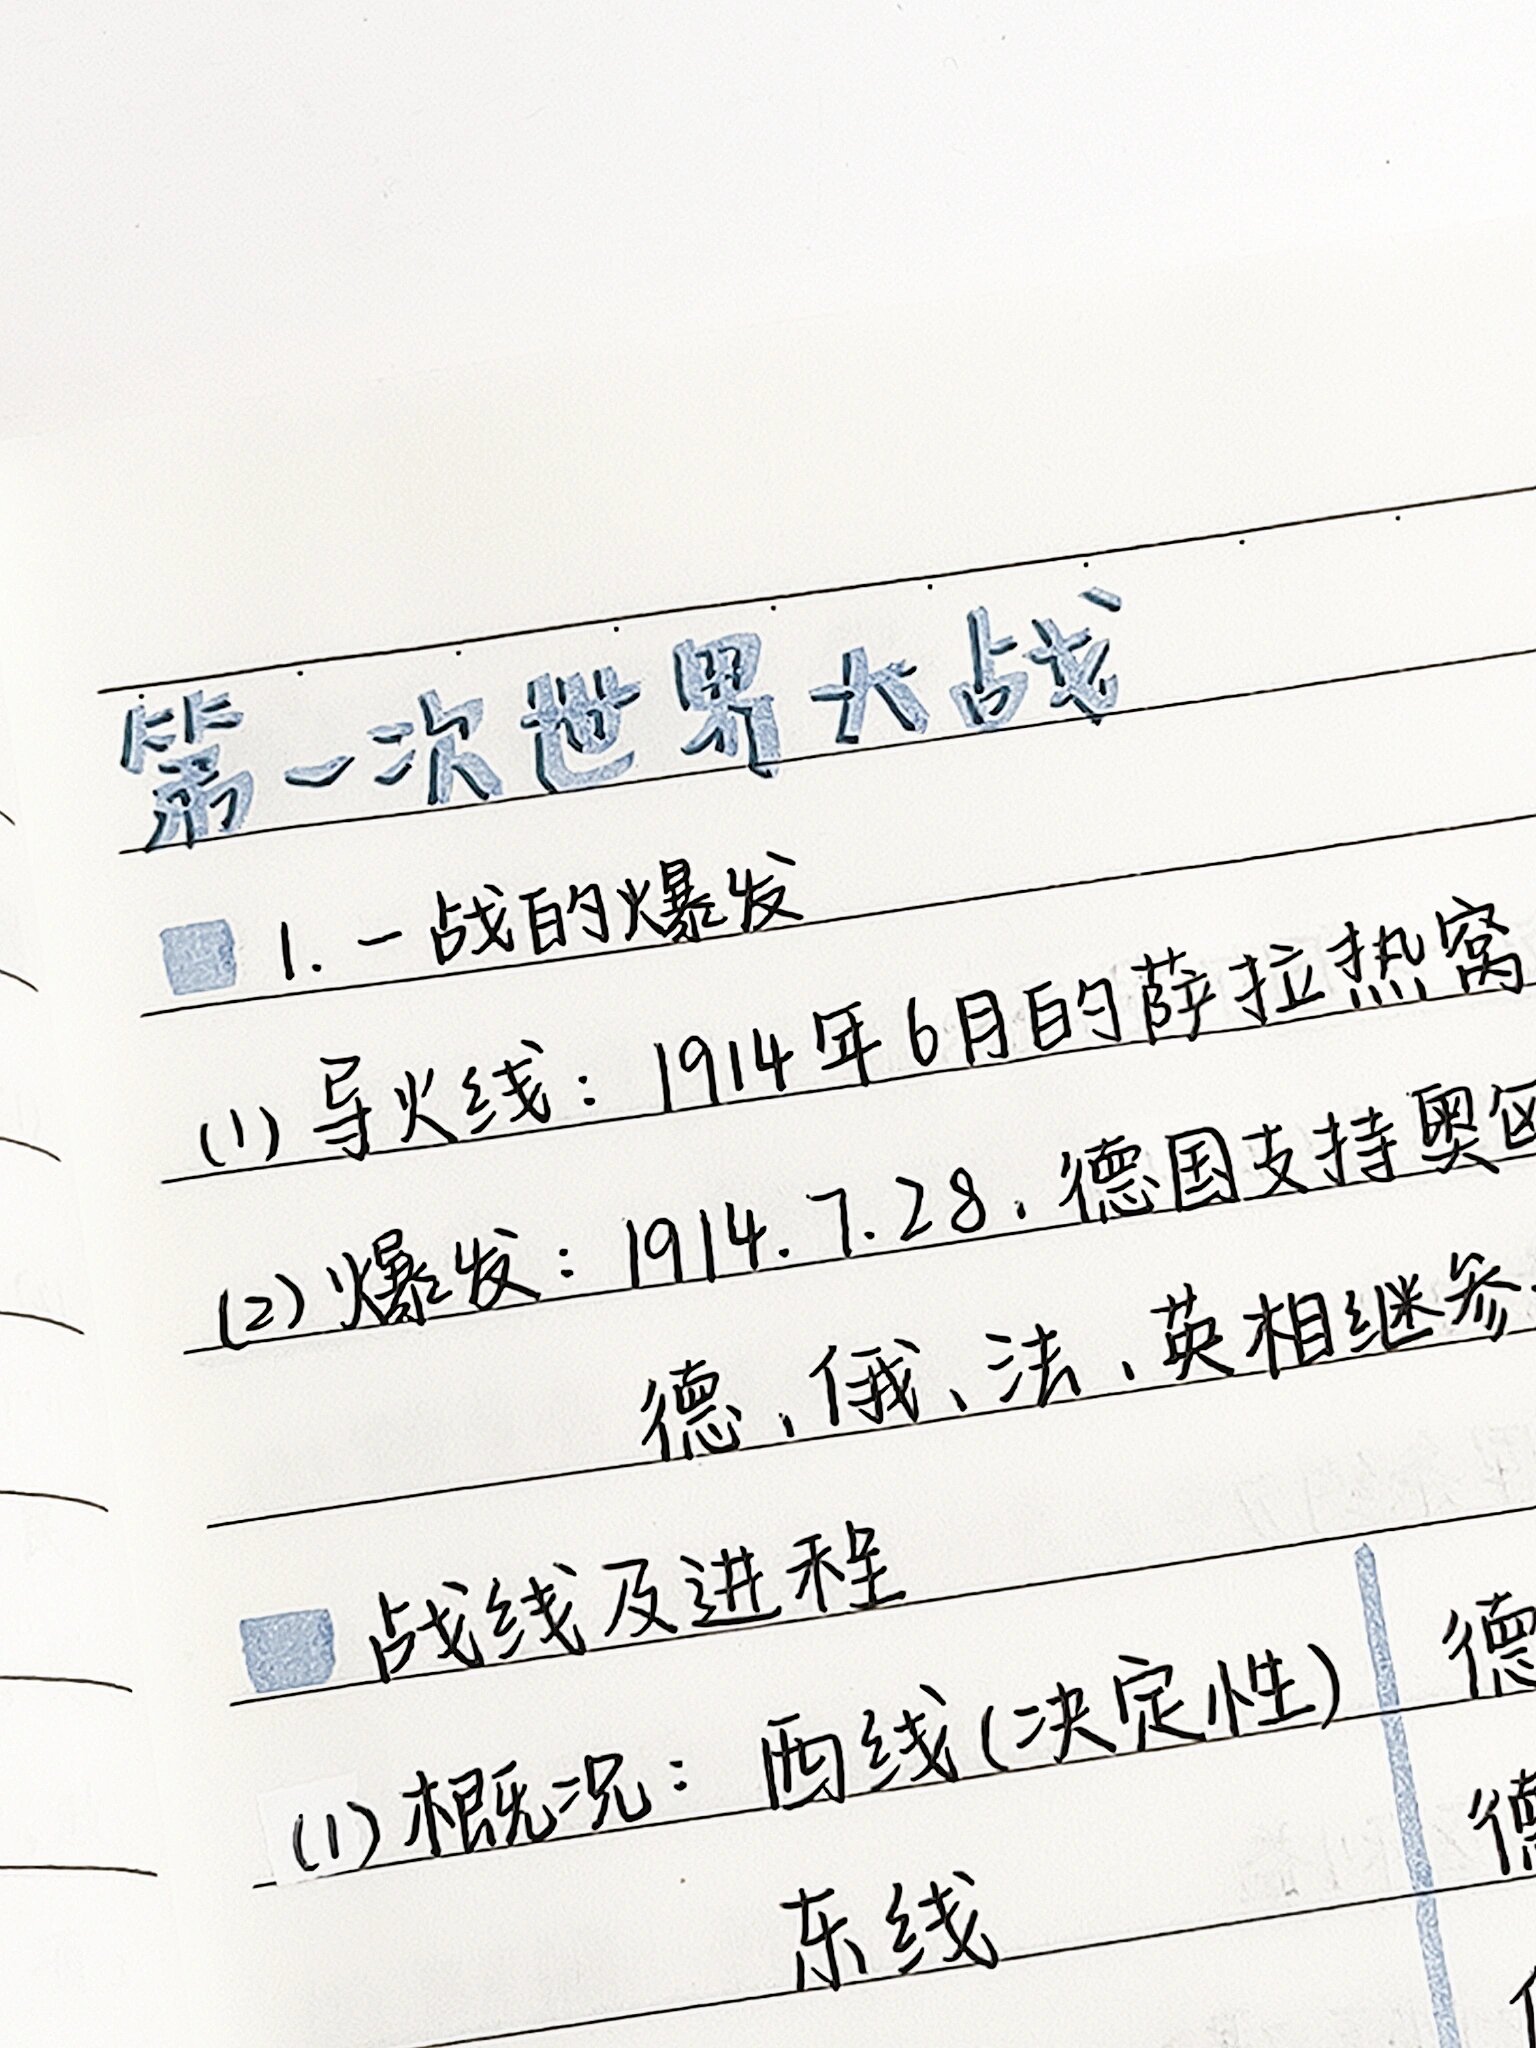 第一次世界大战
1. 一战的爆发
(1) 导火线：1914年6月的萨拉热窝
(2) 爆发：1914.7.28，德国支持奥匈
德、俄、法、英相继参
战线及进程
(1) 概况：西线(决定性) 德
东线 德